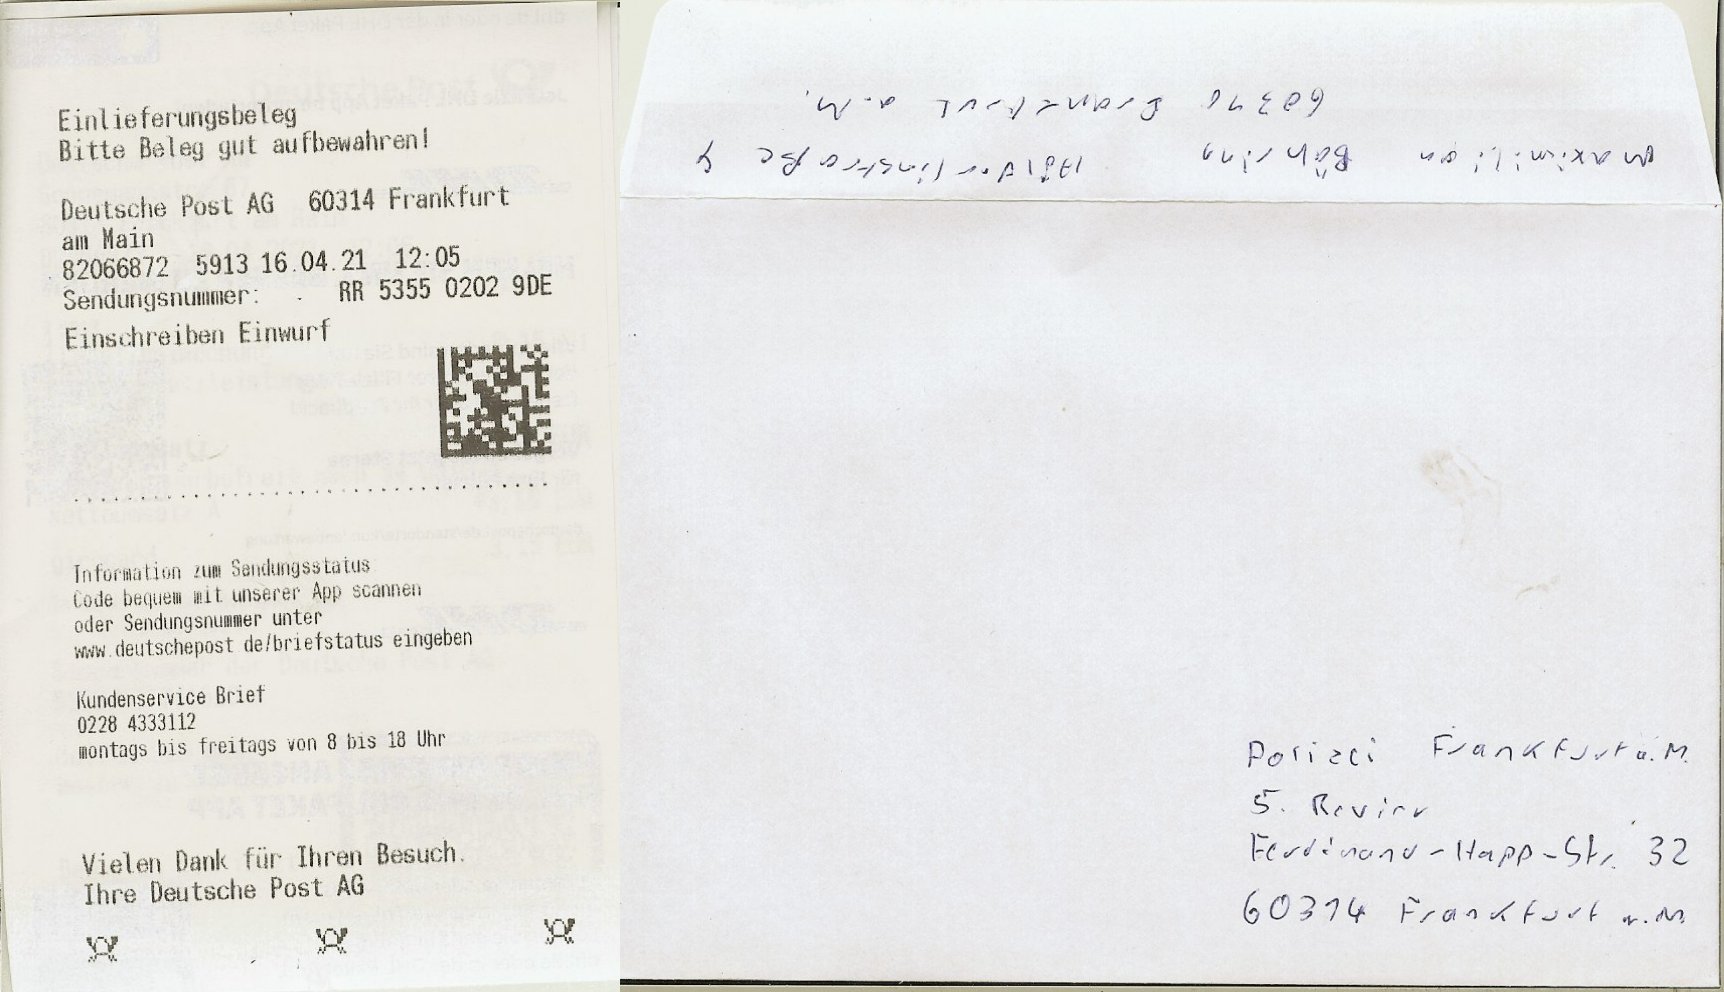 Einlieferungsbeleg
Bitte Beleg gut aufbewahren!
Deutsche Post AG 60314 Frankfurt
am Main
82066872 5913 16.04.21 12:05
Sendungsnummer: RR 5355 0202 9DE
Einschreiben Einwurf
Information zum Sendungsstatus
Code bequem mit unserer App scannen
oder Sendungsnummer unter
www.deutschepost de/briefstatus eingeben
Kundenservice Brief
0228 4333112
montags bis freitags von 8 bis 18 Uhr
Vielen Dank für Ihren Besuch.
Ihre Deutsche Post AG
Maximilian Bähring Hölderlinstraße 4
60316 Frankfurt a.M.
Polizei Frankfurt a.M.
5. Revier
Ferdinand-Happ-Str. 32
60314 Frankfurt a.M.